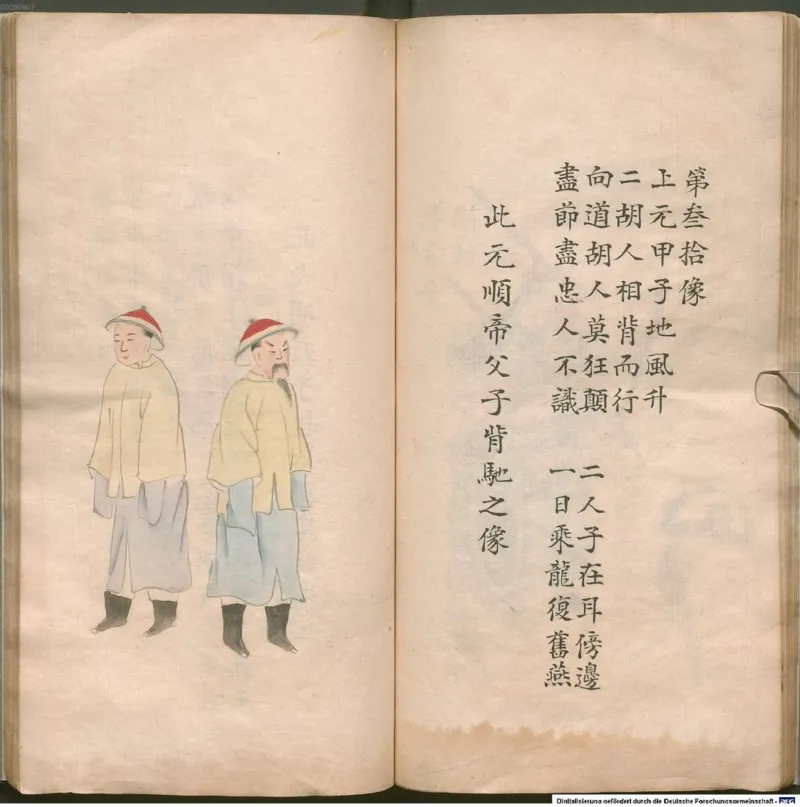 第叁拾像
上元甲子地風升
二胡人相背而行
向道胡人莫狂顛　二人子在耳傍邊
盡節盡忠人不識　一日乘龍復舊燕
此元順帝父子背馳之像
Digitalisierung gefördert durch die Deutsche Forschungsgemeinschaft -